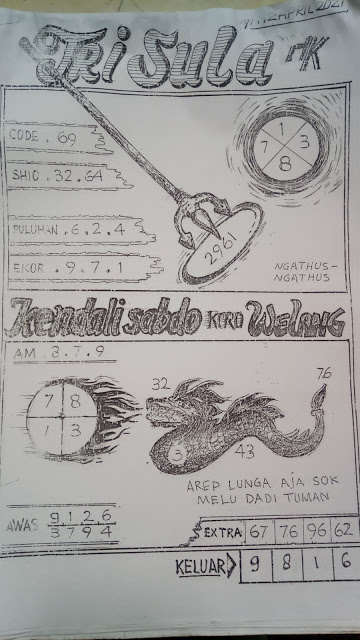 11.12.APRIL.2021
Tri Sula MK
CODE . 69
SHIO . 32.64
PULUHAN . 6 . 2 . 4
EKOR . 9 . 7 . 1
1
7 3
8
2961
NGATHUS-
NGATHUS
Kendali sabdo KIRO WELANG
AM . 3 . 7 . 9
7 8
1 3
32
76
3
43
AREP LUNGA AJA SOK
MELU DADI TUMAN
AWAS 9 . 1 . 2 . 6
3 7 9 4
EXTRA 67 76 96 62
KELUAR 9 8 1 6